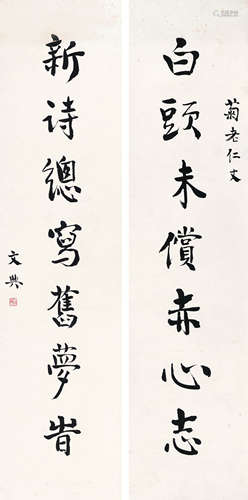 菊老仁丈
白頭未償赤心志
新詩總寫舊夢
文興